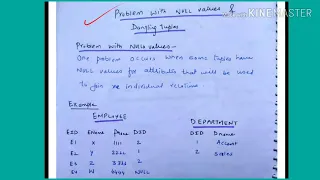 Problem with NULL values &
Dangling Tuples
KINEMASTER
Problem with NULL values -
One problem occurs when some tuples have
NULL values for attributes that will be used
to join individual relations.
Example
EMPLOYEE
DEPARTMENT
EID EName Phone DID
DID Dname
E1 X 1111 2
1 Account
E2 Y 2222 1
2 Sales
E3 Z 3333 2
E4 W 4444 NULL